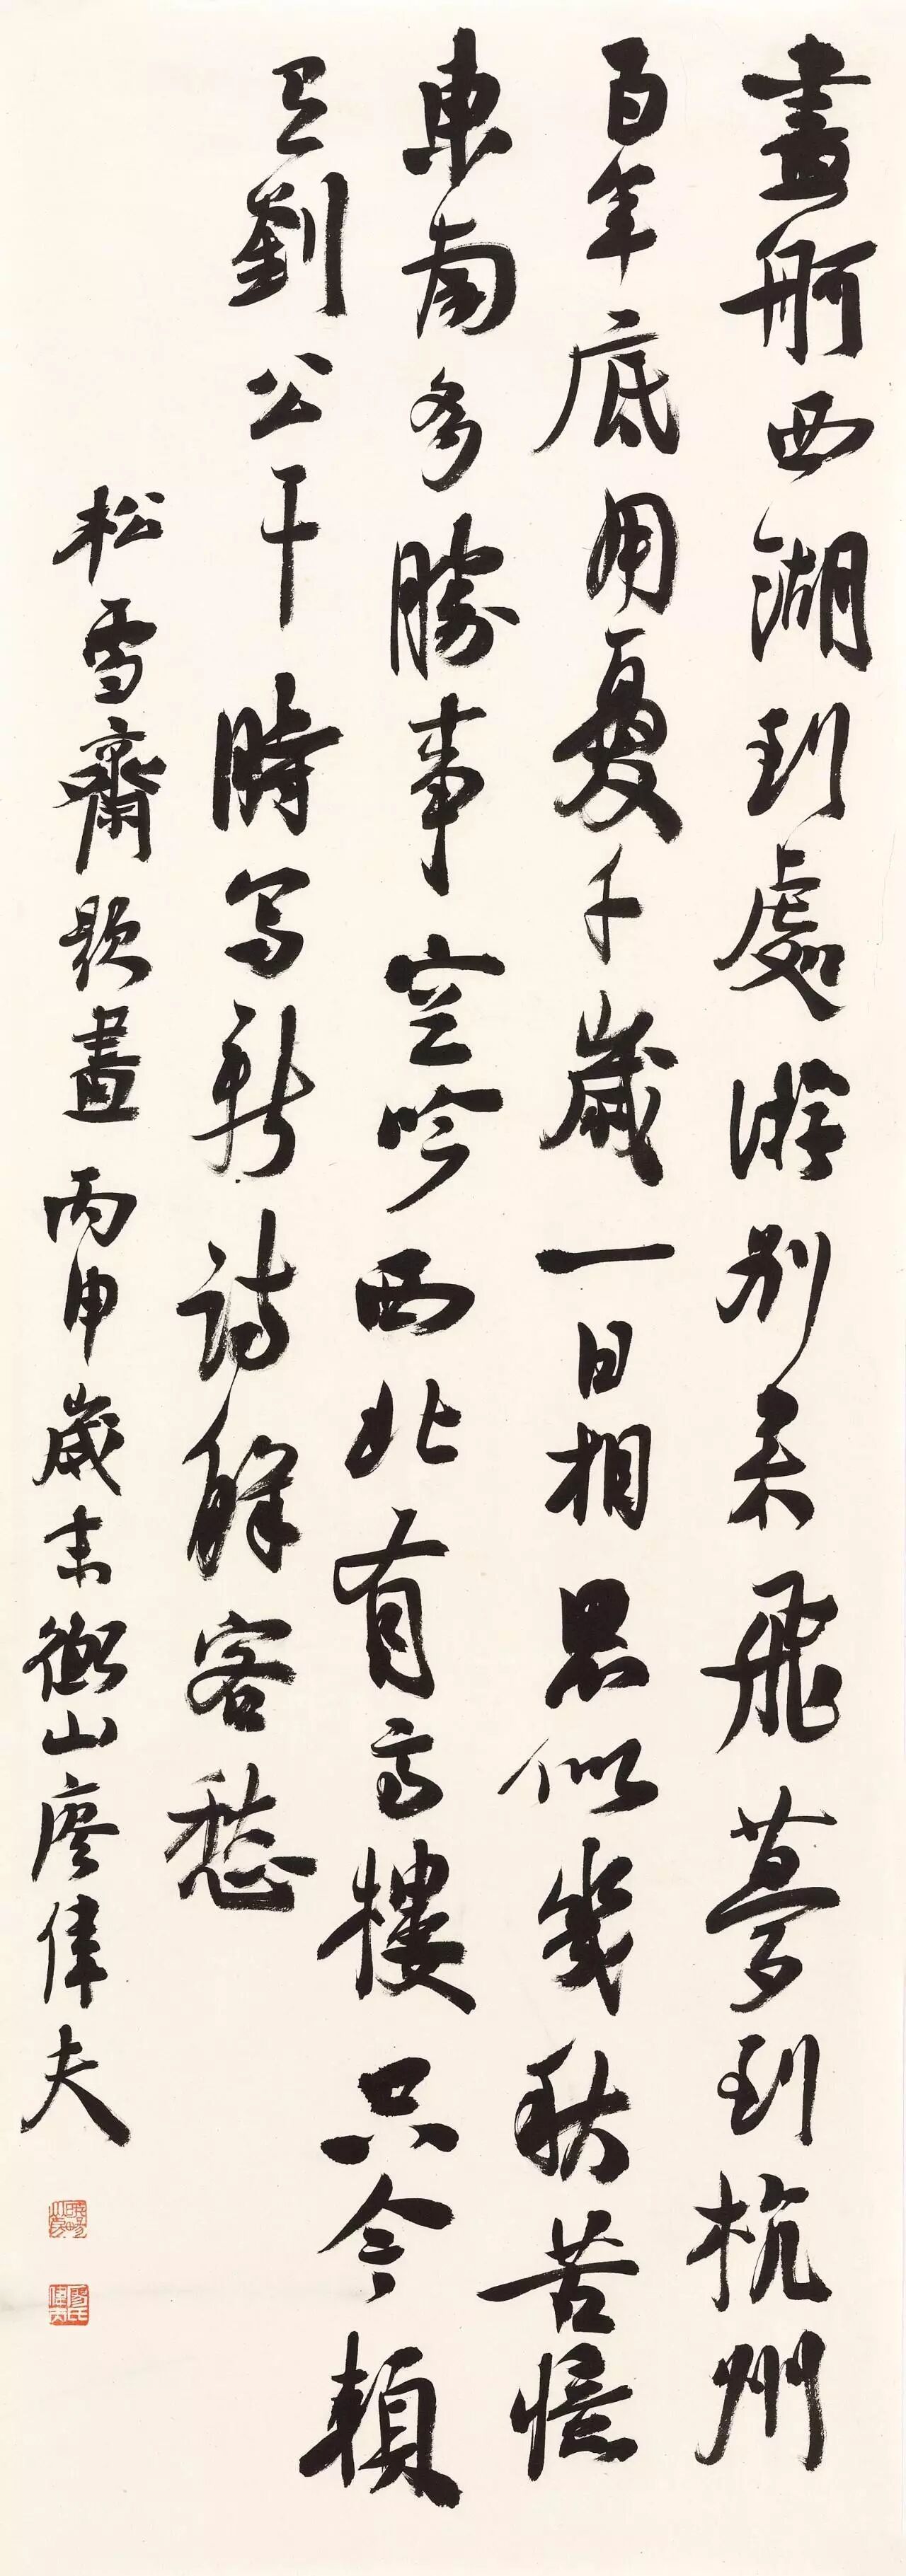 畫舸西湖到處游別來飛夢到杭州
百年底用憂千歲一日相思似幾秋苦憶
東南多勝事空吟西北有高樓只今賴
有劉公干時寫新詩解客愁
松雪齋題畫 丙申歲末衡山廖偉夫